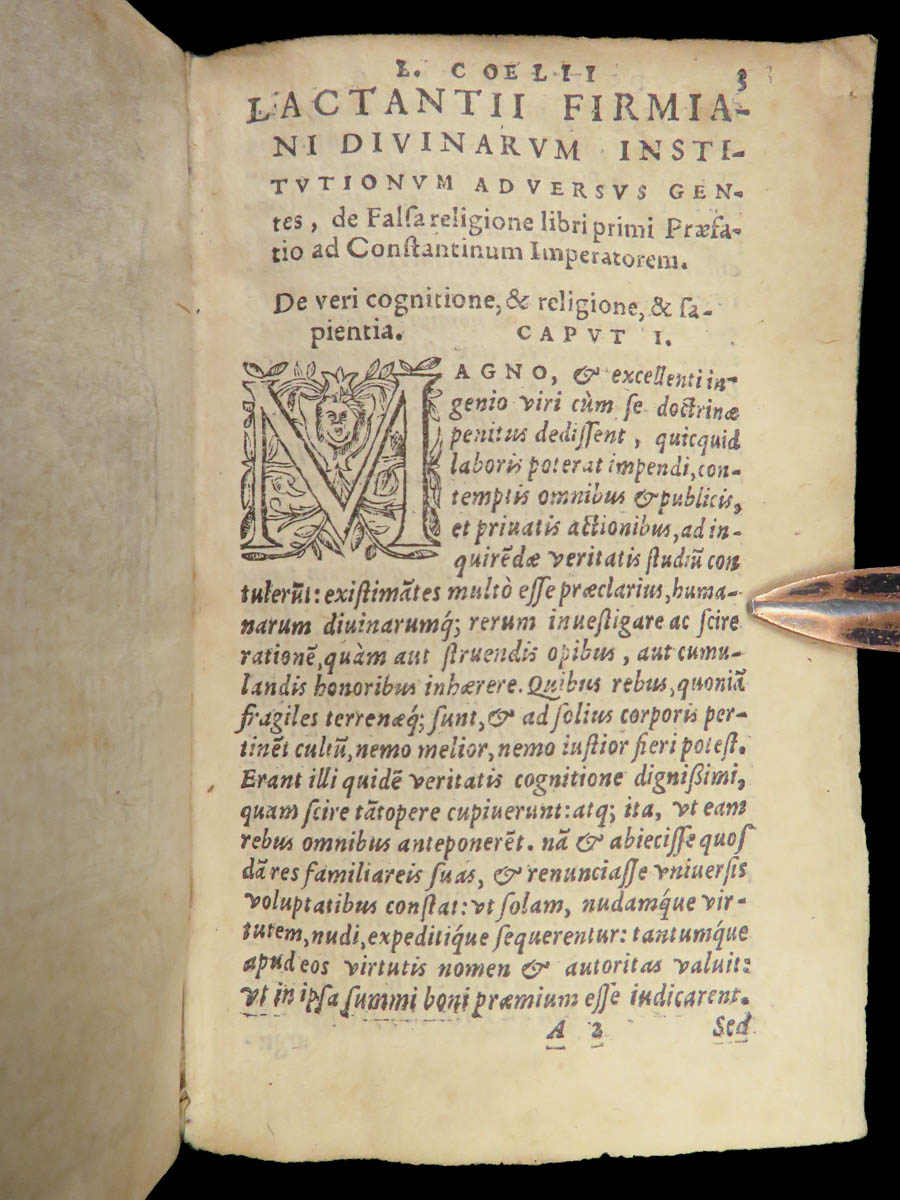 L. COELII 3
LACTANTII FIRMIA-
NI DIVINARVM INSTI-
TVTIONVM ADVERSVS GEN-
tes, de Falſa religione libri primi Præfa-
tio ad Conſtantinum Imperatorem.
De veri cognitione, & religione, & ſa-
pientia. CAPVT I.
MAGNO, & excellenti in-
genio viri cùm ſe doctrinæ
penitus dediſſent, quicquid
laboris poterat impendi, con-
temptis omnibus & publicis,
et priuatis actionibus, ad in-
quirẽdæ veritatis ſtudiũ con
tulerũt: exiſtimãtes multò eſſe præclarius, huma-
narum diuinarumq́; rerum inueſtigare ac ſcire
rationẽ, quàm aut ſtruendis opibus, aut cumu-
landis honoribus inhærere. Quibus rebus, quoniã
fragiles terrenæq́; ſunt, & ad ſolius corporis per-
tinẽt cultũ, nemo melior, nemo iuſtior fieri poteſt.
Erant illi quidẽ veritatis cognitione digniſſimi,
quam ſcire tãtopere cupiuerunt: atq; ita, vt eam
rebus omnibus anteponerẽt. nã & abieciſſe quoſ
dã res familiareis ſuas, & renunciaſſe vniuerſis
voluptatibus conſtat: vt ſolam, nudamq́ue vir-
tutem, nudi, expeditiq́ue ſequerentur: tantumq́ue
apud eos virtutis nomen & autoritas valuit:
vt in ipſa ſummi boni præmium eſſe iudicarent.
A 2 Sed